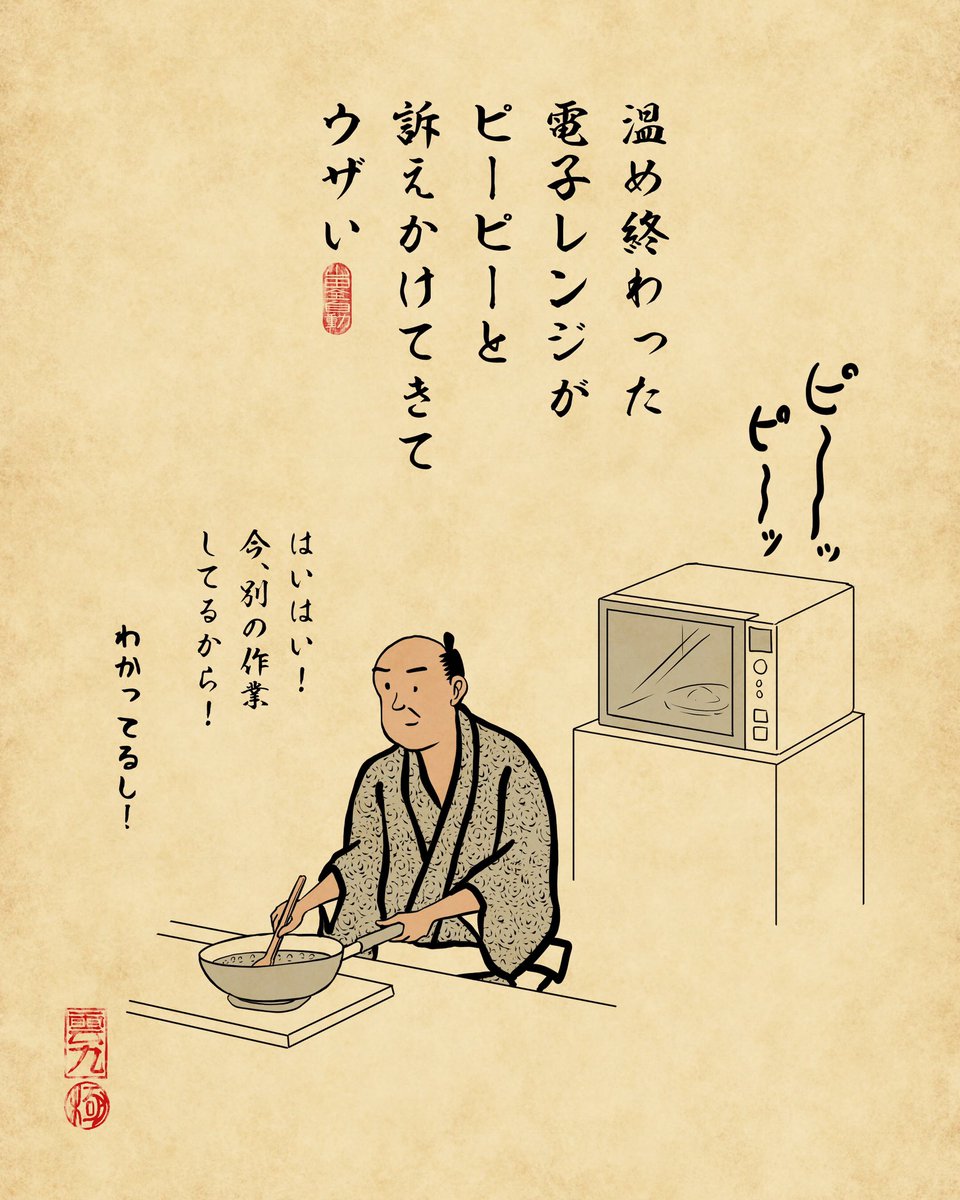 温め終わった
電子レンジが
ピーピーと
訴えかけてきて
ウザい
ピ〜〜ッ
ピ〜ッ
はいはい！
今、別の作業
してるから！
わかってるし！